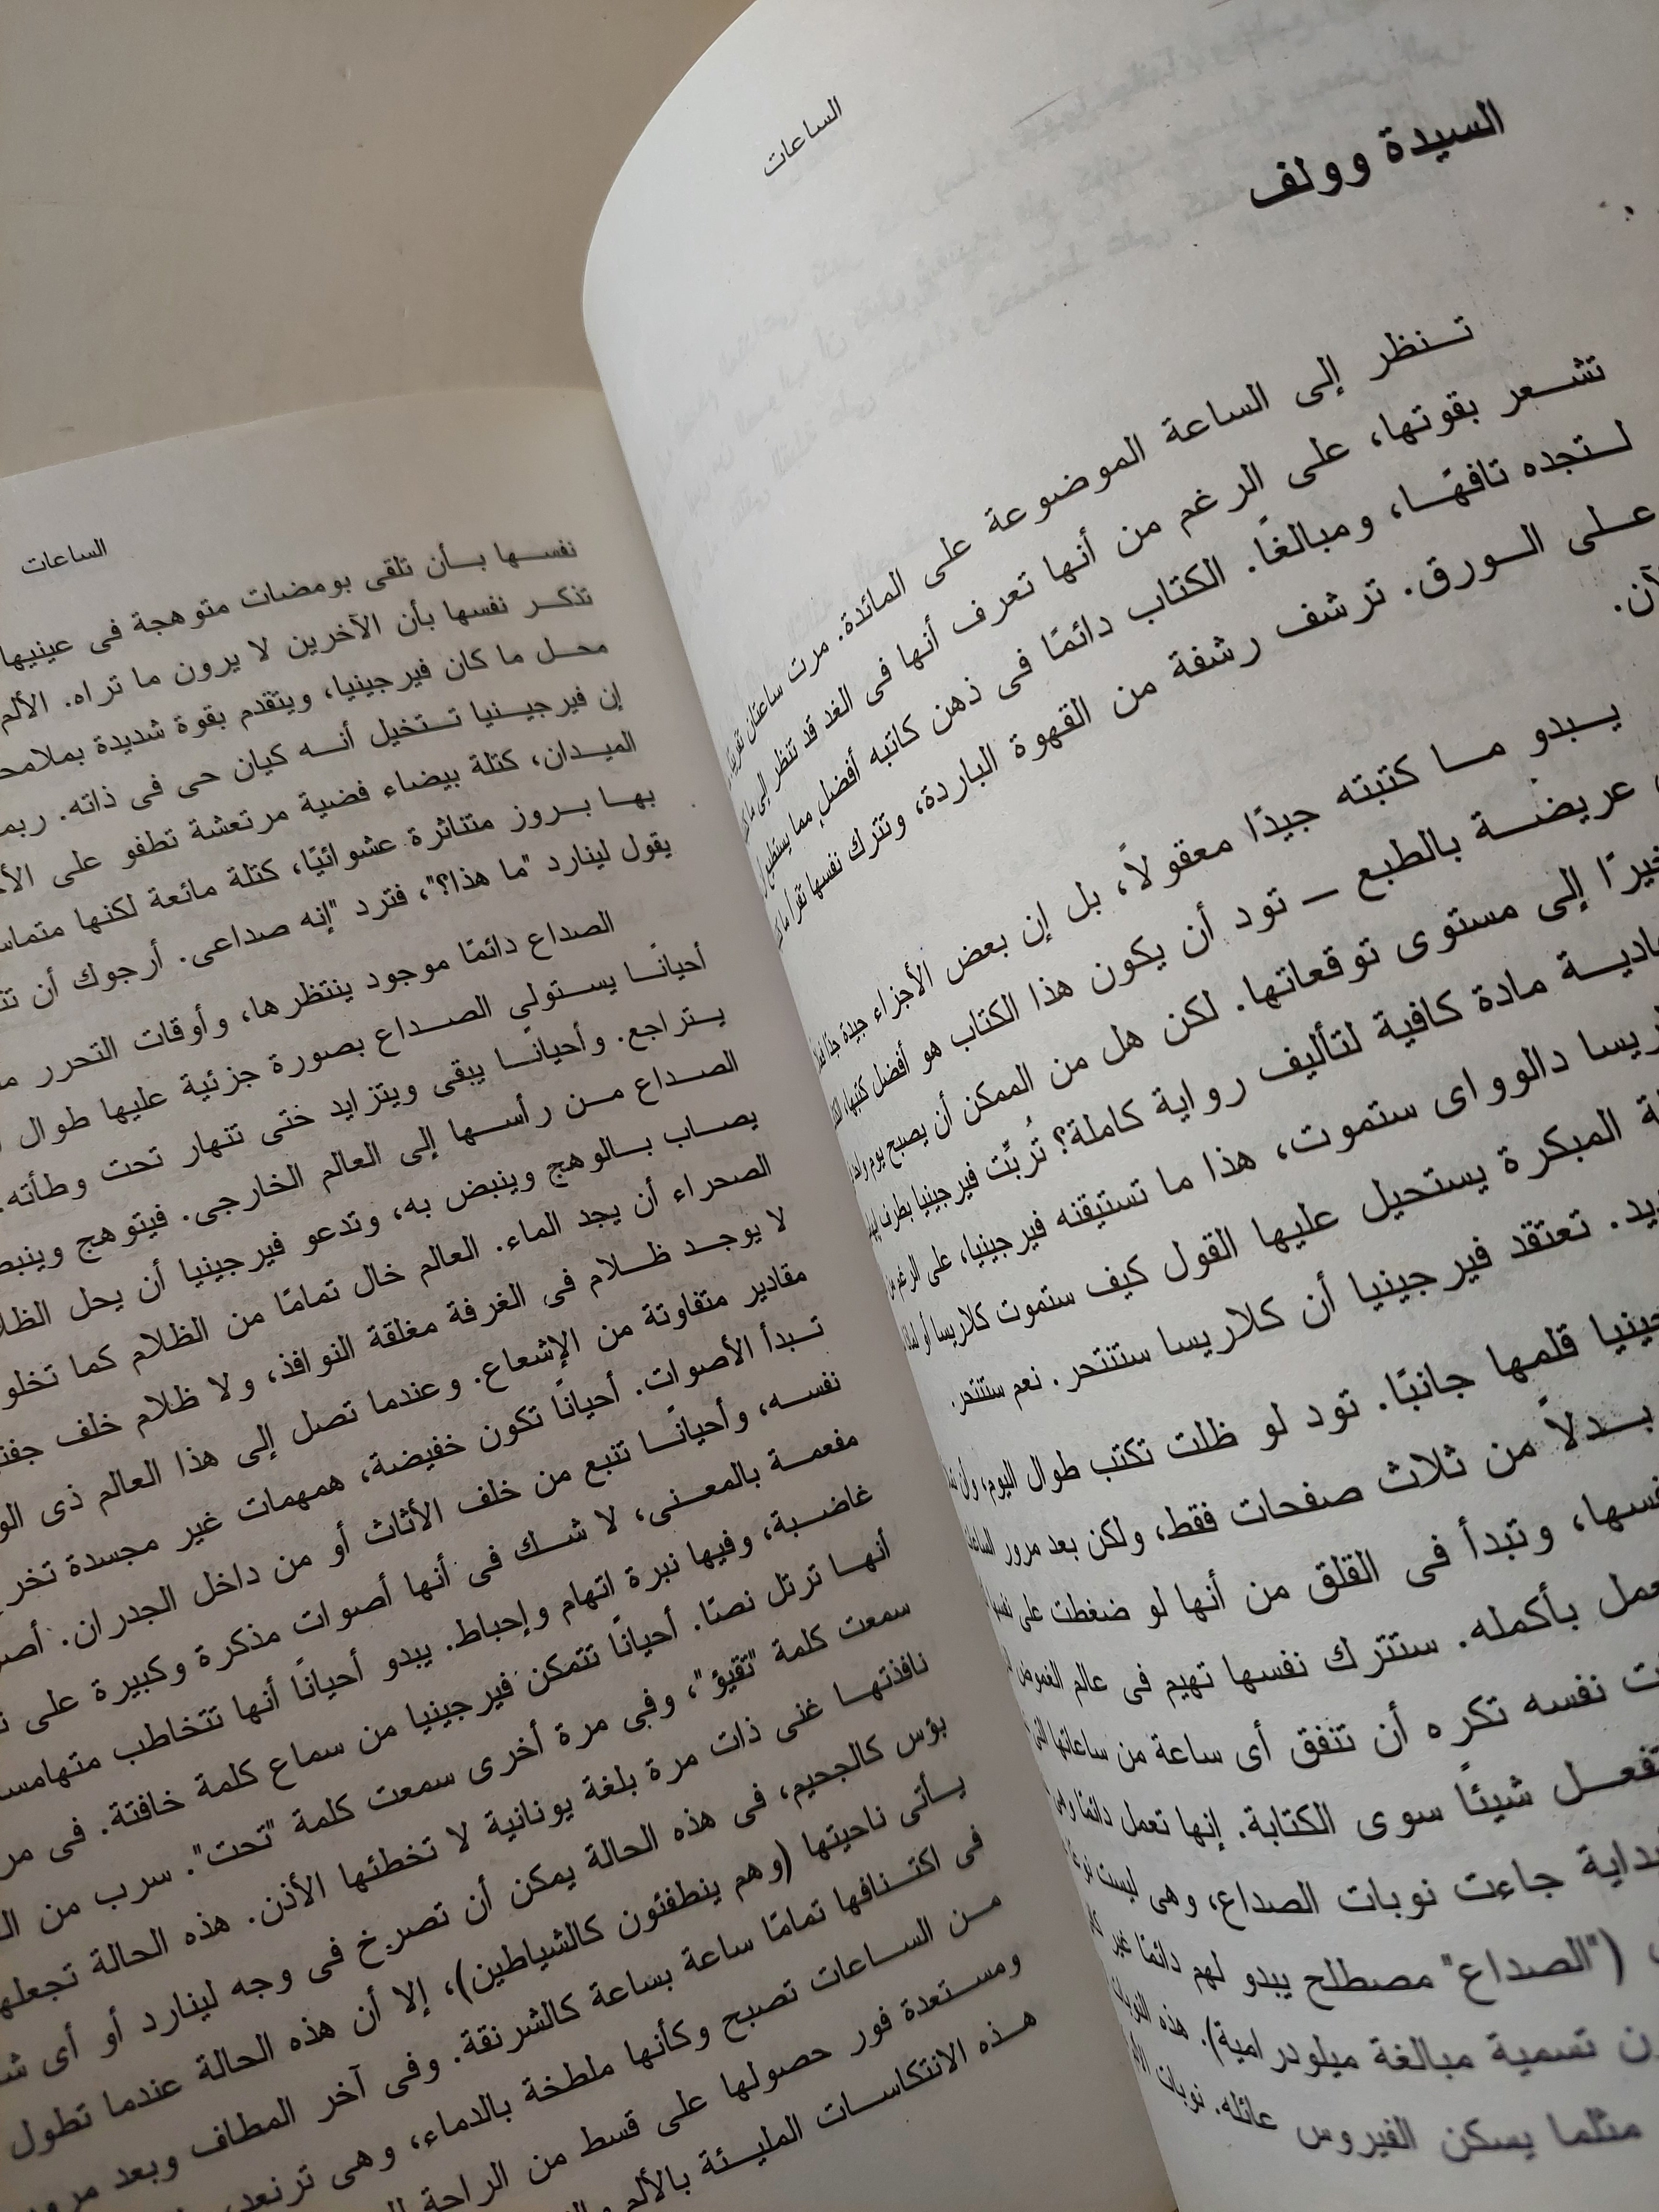 الساعات
السيدة وولف
تنظر إلى الساعة الموضوعة على المائدة. مرت ساعتان تقريبًا،
تشعر بقوتها، على الرغم من أنها تعرف أنها فى الغد قد تنظر إلى ما
لتجده تافهًا، ومبالغًا. الكتاب دائمًا فى ذهن كاتبه أفضل مما يستطيع
على الورق. ترشف رشفة من القهوة الباردة، وتترك نفسها تقرأ ما
يبدو ما كتبته جيدًا معقولاً، بل إن بعض الأجزاء جيدة جدًا
عريضة بالطبع – تود أن يكون هذا الكتاب هو أفضل كتبها،
إلى مستوى توقعاتها. لكن هل من الممكن أن يصبح يوم واحد
مادة كافية لتأليف رواية كاملة؟ تُربِّت فيرجينيا بطرف
دالوواى ستموت، هذا ما تستيقنه فيرجينيا، على الرغم من
المبكرة يستحيل عليها القول كيف ستموت كلاريسا أو لماذا
تعتقد فيرجينيا أن كلاريسا ستنتحر. نعم ستنتحر.
قلمها جانبًا. تود لو ظلت تكتب طوال اليوم، وأن
بدلاً من ثلاث صفحات فقط، ولكن بعد مرور الساعات
وتبدأ فى القلق من أنها لو ضغطت على نفسها
بأكمله. ستترك نفسها تهيم فى عالم الغموض
نفسه تكره أن تنفق أى ساعة من ساعاتها التى
شيئًا سوى الكتابة. إنها تعمل دائمًا
جاءت نوبات الصداع، وهى ليست
("الصداع" مصطلح يبدو لهم دائمًا غير
تسمية مبالغة ميلودرامية). هذه النوبات
مثلما يسكن الفيروس عائله. نوبات
الساعات
نفسها بأن تلقى بومضات متوهجة فى عينيها
تذكر نفسها بأن الآخرين لا يرون ما تراه. الألم
محل ما كان فيرجينيا، ويتقدم بقوة شديدة
إن فيرجينيا تتخيل أنه كيان حى فى ذاته.
الميدان، كتلة بيضاء فضية مرتعشة تطفو على
بها بروز متناثرة عشوائيًا، كتلة مائعة لكنها
يقول لينارد "ما هذا؟"، فترد "إنه صداعى. أرجوك أن
الصداع دائمًا موجود ينتظرها، وأوقات التحرر
أحيانًا يستولى الصداع بصورة جزئية عليها طوال
يتراجع. وأحيانًا يبقى ويتزايد ختى تنهار تحت وطأته.
الصداع من رأسها إلى العالم الخارجى. فيتوهج
يصاب بالوهج وينبض به، وتدعو فيرجينيا أن يحل
الصحراء أن يجد الماء. العالم خال تمامًا من الظلام كما تخلو
لا يوجد ظلام فى الغرفة مغلقة النوافذ، ولا ظلام خلف
مقادير متفاوتة من الإشعاع. وعندما تصل إلى هذا العالم ذى
تبدأ الأصوات. أحيانًا تكون خفيضة، همهمات غير مجسدة
نفسه، وأحيانًا تنبع من خلف الأثاث أو من داخل الجدران.
مفعمة بالمعنى، لا شك فى أنها أصوات مذكرة وكبيرة على
غاضبة، وفيها نبرة اتهام وإحباط. يبدو أحيانًا أنها تتخاطب
أنها ترتل نصًا. أحيانًا تتمكن فيرجينيا من سماع كلمة خافتة. فى
سمعت كلمة "تقيؤ"، وفى مرة أخرى سمعت كلمة "تحت". سرب من
نافذتها غنى ذات مرة بلغة يونانية لا تخطئها الأذن. هذه الحالة
بؤس كالجحيم، فى هذه الحالة يمكن أن تصرخ فى وجه لينارد أو أى
يأتى ناحيتها (وهم ينطفئون كالشياطين)، إلا أن هذه الحالة عندما تطول
فى اكتنافها تمامًا ساعة بساعة كالشرنقة. وفى آخر المطاف وبعد
من الساعات تصبح وكأنها ملطخة بالدماء، وهى
ومستعدة فور حصولها على قسط من الراحة
هذه الانتكاسات المليئة بالألم